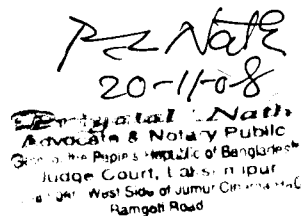 P Nath
20-11-08
Priyalal Nath
Advocate & Notary Public
Govt. of the People's Republic of Bangladesh
Judge Court, Laksmipur
West Side of Jumur Cinema Hall
Ramgoti Road